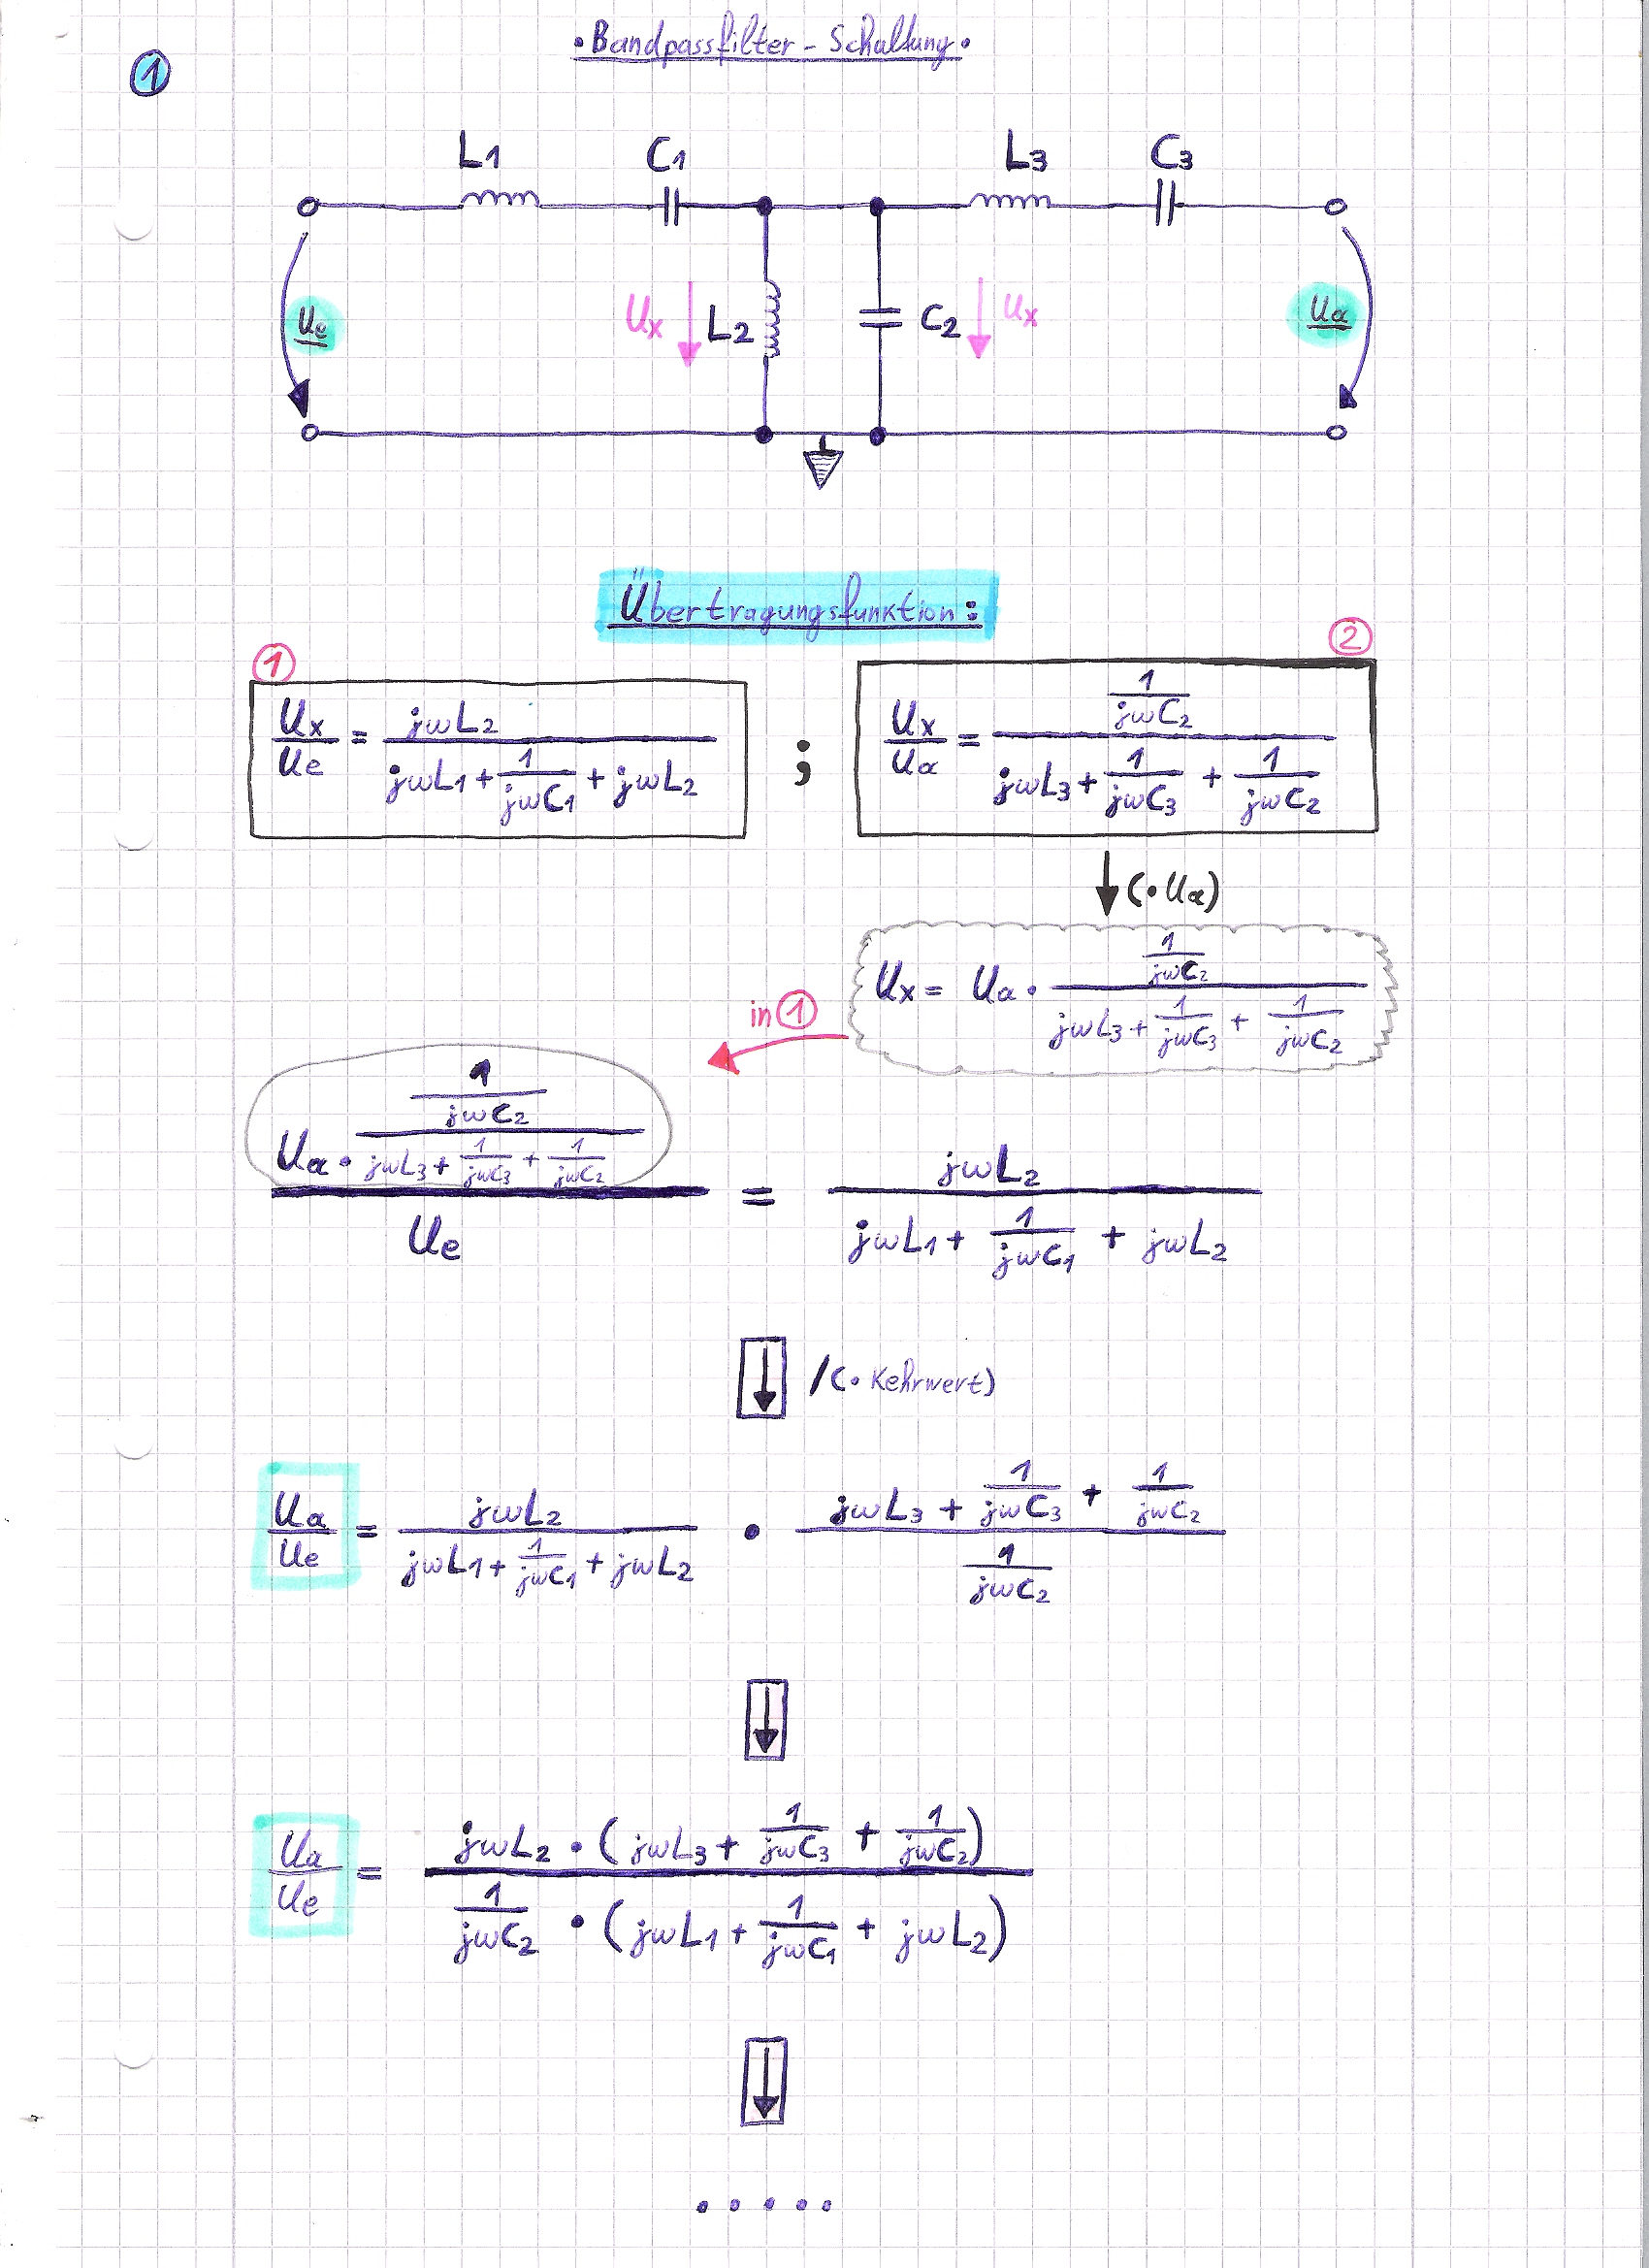 • Bandpassfilter - Schaltung •
1
L1 C1 L3 C3
Ue Ux L2 C2 Ux Ua
Übertragungsfunktion:
1 2
Ux/Ue = jωL2 / (jωL1 + 1/jωC1 + jωL2) ; Ux/Ua = (1/jωC2) / (jωL3 + 1/jωC3 + 1/jωC2)
(• Ua)
Ux = Ua • (1/jωC2) / (jωL3 + 1/jωC3 + 1/jωC2)
in 1
Ua • (1/jωC2) / (jωL3 + 1/jωC3 + 1/jωC2) / Ue = jωL2 / (jωL1 + 1/jωC1 + jωL2)
/(• Kehrwert)
Ua/Ue = jωL2 / (jωL1 + 1/jωC1 + jωL2) • (jωL3 + 1/jωC3 + 1/jωC2) / (1/jωC2)
Ua/Ue = jωL2 • (jωL3 + 1/jωC3 + 1/jωC2) / (1/jωC2 • (jωL1 + 1/jωC1 + jωL2))
• • • • •